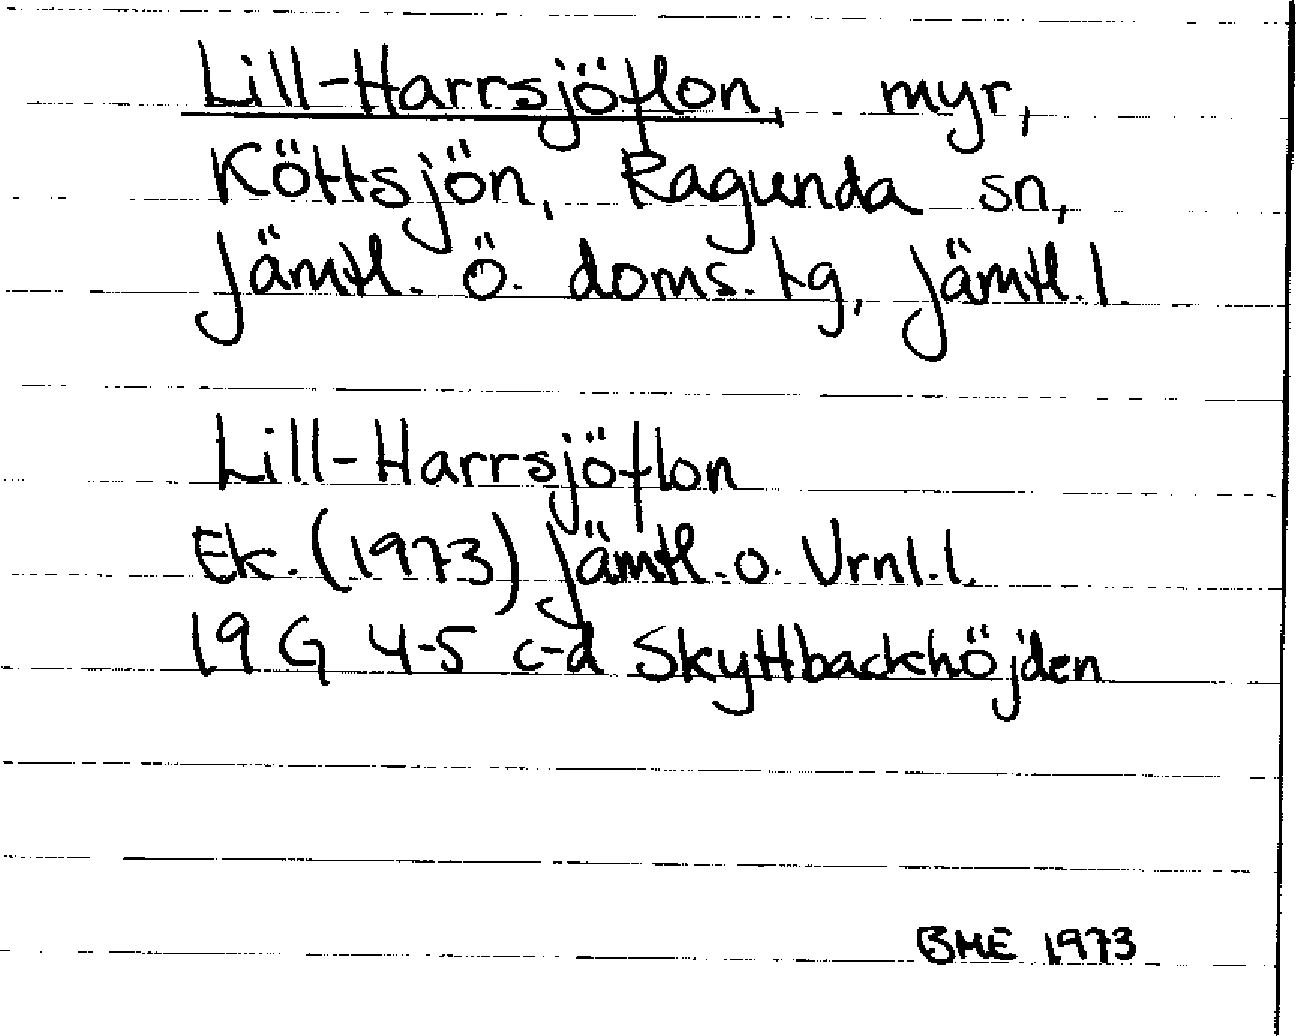 Lill-Harrsjöflon, myr,
Köttsjön, Ragunda sn,
Jämtl. ö. doms. tg, Jämtl. l.
Lill-Harrsjöflon
Ek. (1973) Jämtl. o. Vrnl. l.
19 G 4-5 c-d Skyttbackhöjden
BME 1973